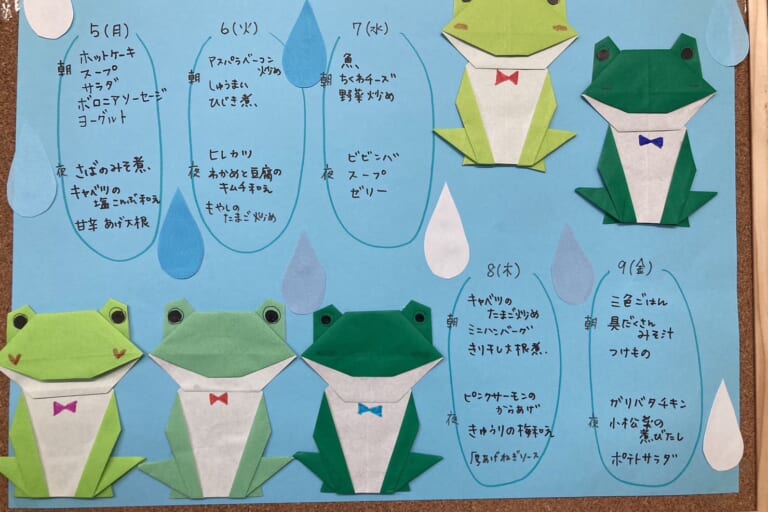 5(月)
朝
ホットケーキ
スープ
サラダ
ボロニアソーセージ
ヨーグルト
夜
さばのみそ煮
キャベツの
塩こんぶ和え
甘辛あげ大根
6(火)
朝
アスパラベーコン
炒め
しゅうまい
ひじき煮
夜
ヒレカツ
わかめと豆腐の
キムチ和え
もやしの
たまご炒め
7(水)
朝
魚
ちくわチーズ
野菜炒め
夜
ビビンバ
スープ
ゼリー
8(木)
朝
キャベツの
たまご炒め
ミニハンバーグ
きりキし大根煮
夜
ピンクサーモンの
からあげ
きゅうりの梅和え
厚あげねぎソース
9(金)
朝
三色ごはん
具だくさん
みそ汁
つけもの
夜
ガリバタチキン
小松菜の
煮びたし
ポテトサラダ